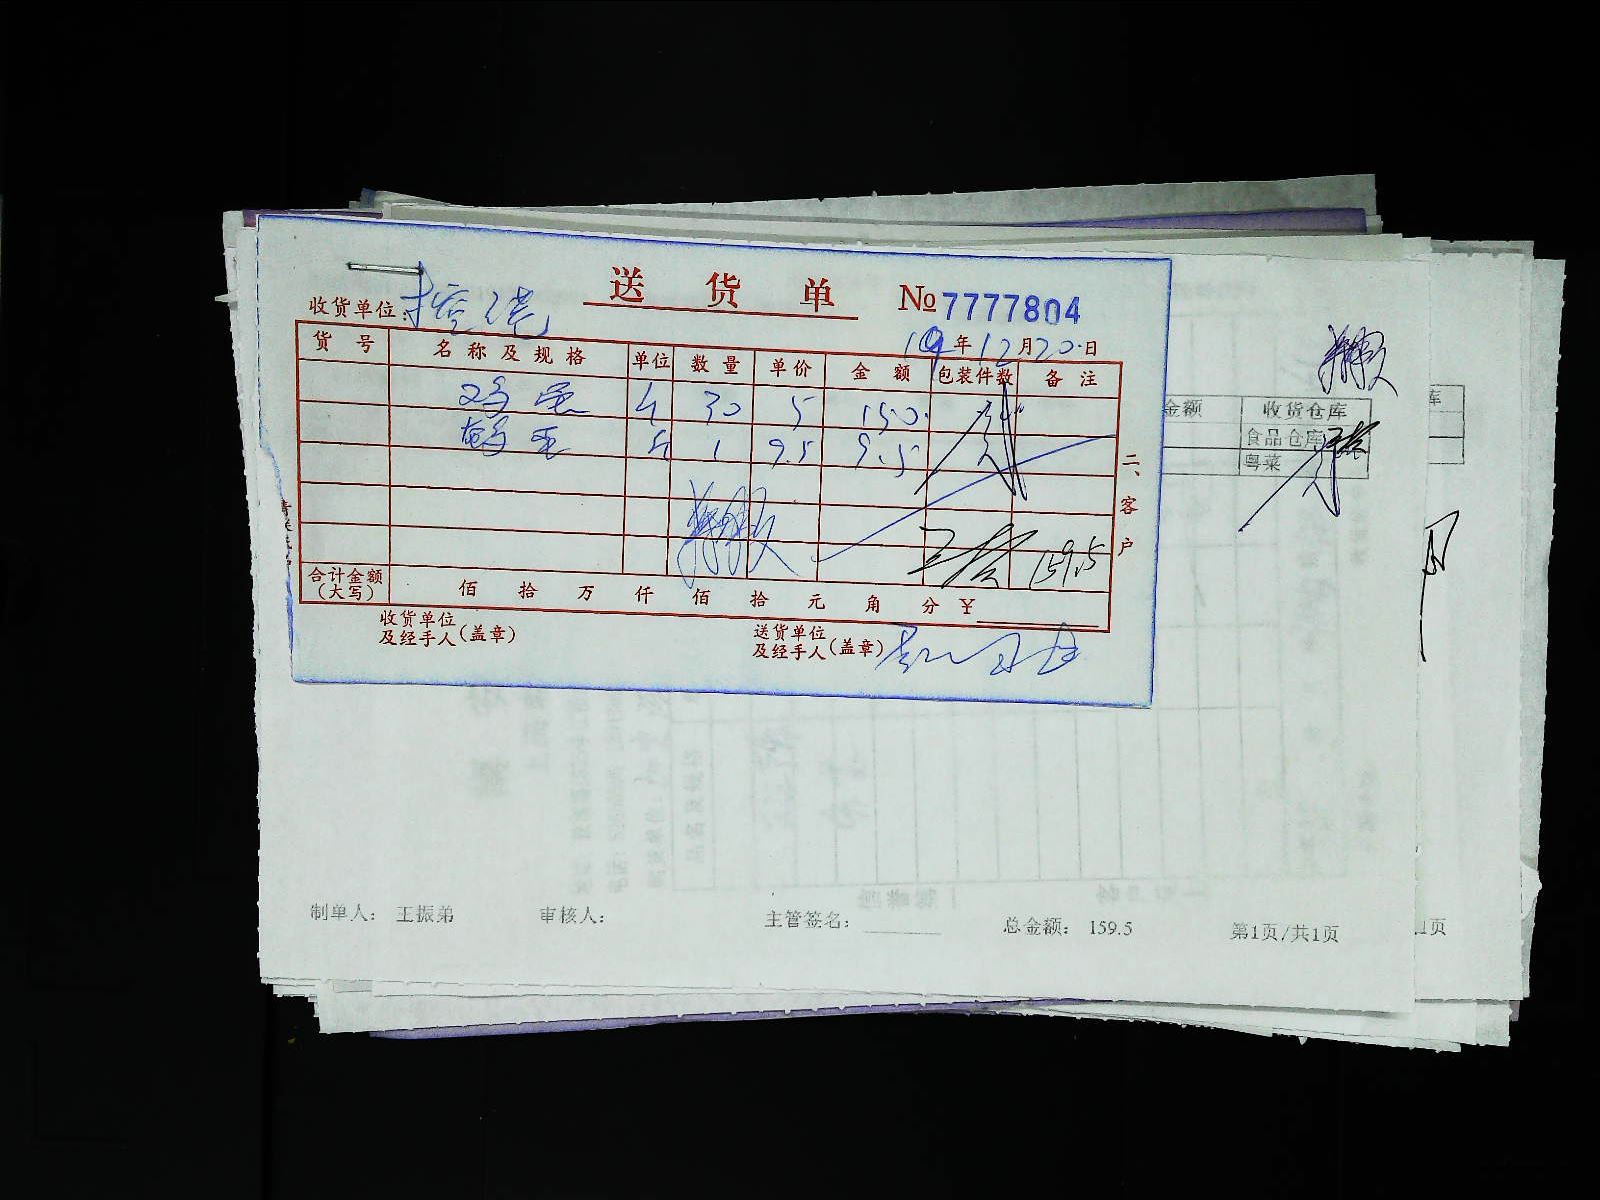 送货单 №7777804
收货单位:
19年12月20日
货号 名称及规格 单位 数量 单价 金额 包装件数 备注
鸡蛋 斤 30 5 150.
蛋 斤 1 9.5 9.5
159.5
合计金额(大写) 佰 拾 万 仟 佰 拾 元 角 分 ¥
收货单位及经手人(盖章)
送货单位及经手人(盖章)
二、客户
金额 收货仓库
食品仓库
粤菜
库
制单人: 王振弟 审核人: 主管签名: 总金额: 159.5 第1页/共1页
1页